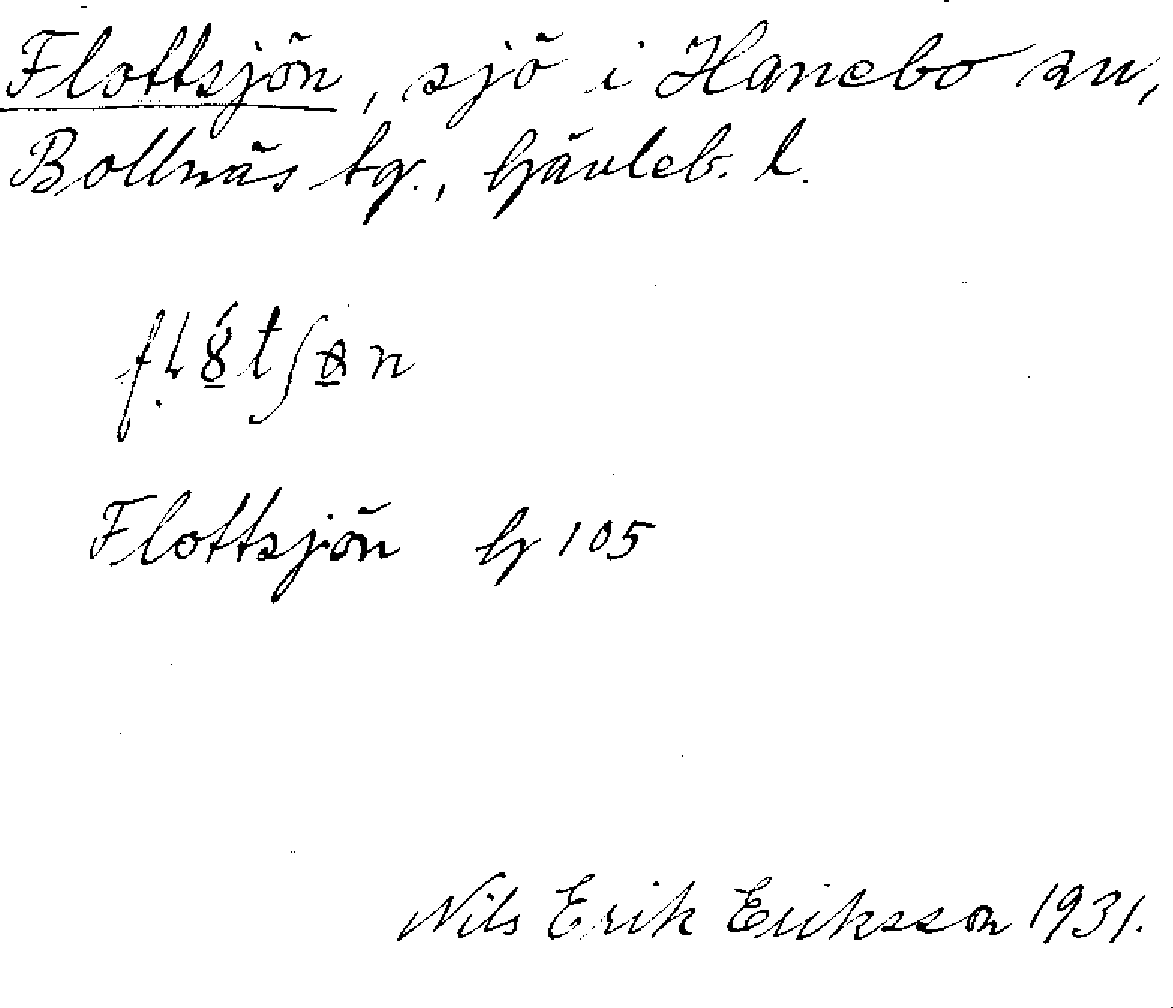 Flottsjön, sjö i Hanebo sn,
Bollnäs tg., Gävleb. l.
Flottsjön G 105
Nils Erik Eriksson 1931.